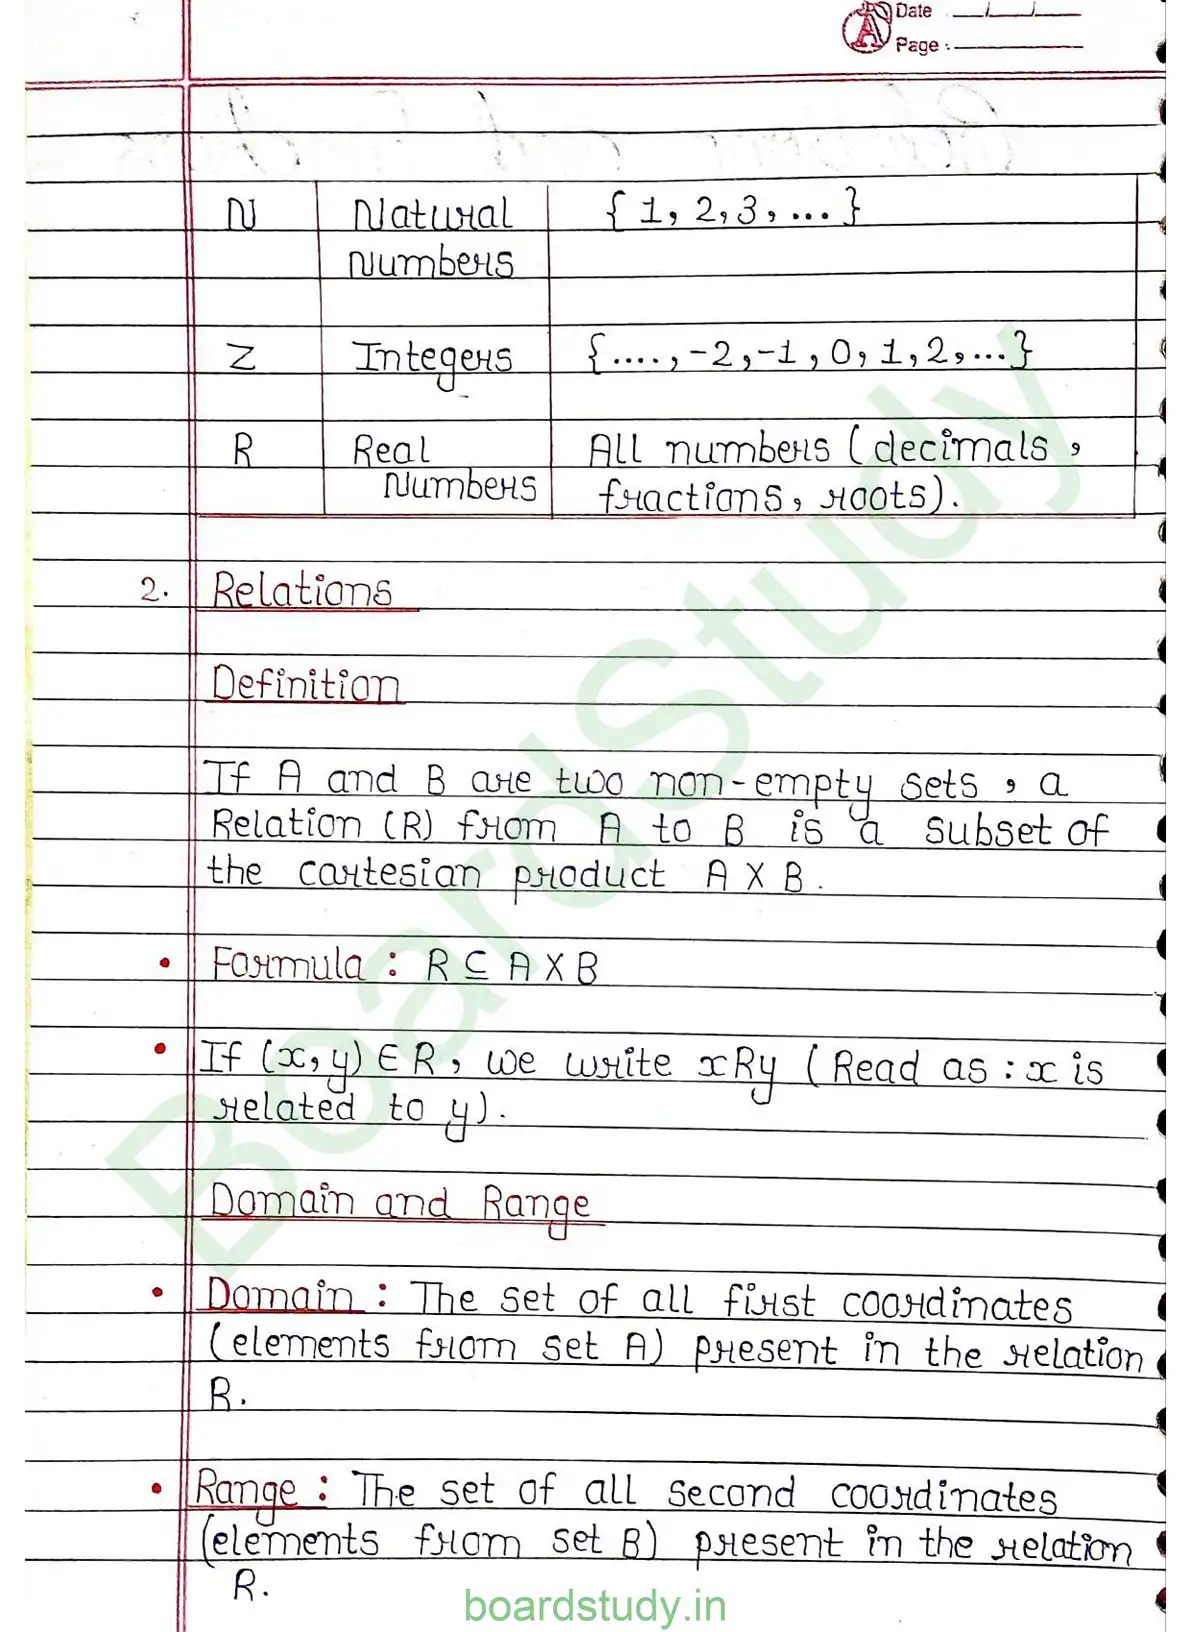 Date
Page :
N Natural { 1, 2, 3, ... }
Numbers
Z Integers {...., -2, -1, 0, 1, 2, ...}
R Real All numbers (decimals,
Numbers fractions, roots).
2. Relations
Definition
If A and B are two non-empty sets, a
Relation (R) from A to B is a subset of
the cartesian product A X B.
• Formula : R ⊆ A X B
• If (x, y) ∈ R, we write xRy (Read as : x is
related to y).
Domain and Range
• Domain : The set of all first coordinates
(elements from set A) present in the relation
R.
• Range : The set of all second coordinates
(elements from set B) present in the relation
R.
BoardStudy
boardstudy.in